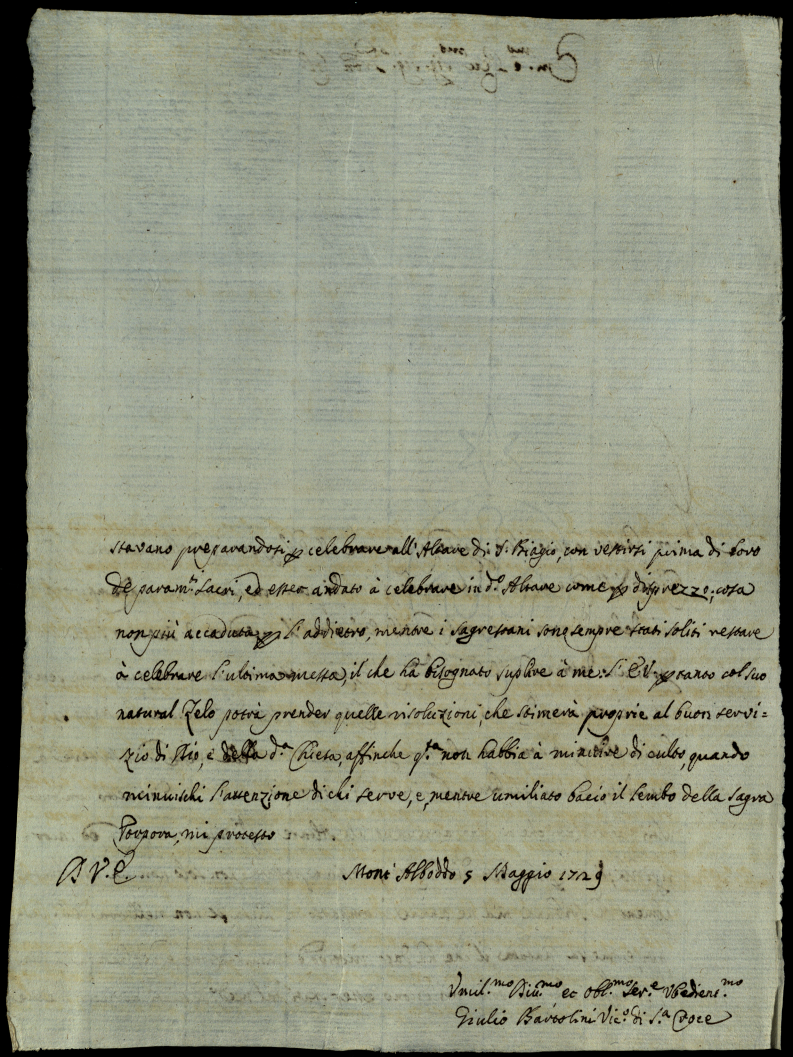 stavano preparandosi p celebrare all'Altare di S. Biagio, con vestirsi prima di loro
de param.ti sacri, ed esser andato à celebrare in d.o Altare come p disprezzo; cosa
non più accaduta p l'addietro, mentre i sagrestani sono sempre stati soliti restare
à celebrare l'ultima messa, il che hà bisognato suplire à me. L'E.V. p tanto col suo
natural Zelo potrà prender quelle risoluzioni, che stimerà proprie al buon servi=
zio di Dio, e della d.a Chiesa, affinche q.ta non habbia à minuire di culto, quando
minuischi l'attenzione di chi serve, e, mentre umiliato bacio il lembo della Sagra
Porpora, mi protesto
D V.E.
Mont'Alboddo 5 Maggio 1729
Vmil.mo Div.mo et Obl.mo Ser.e Vbedient.mo
Giulio Bartolini Vic.o di S.a Croce